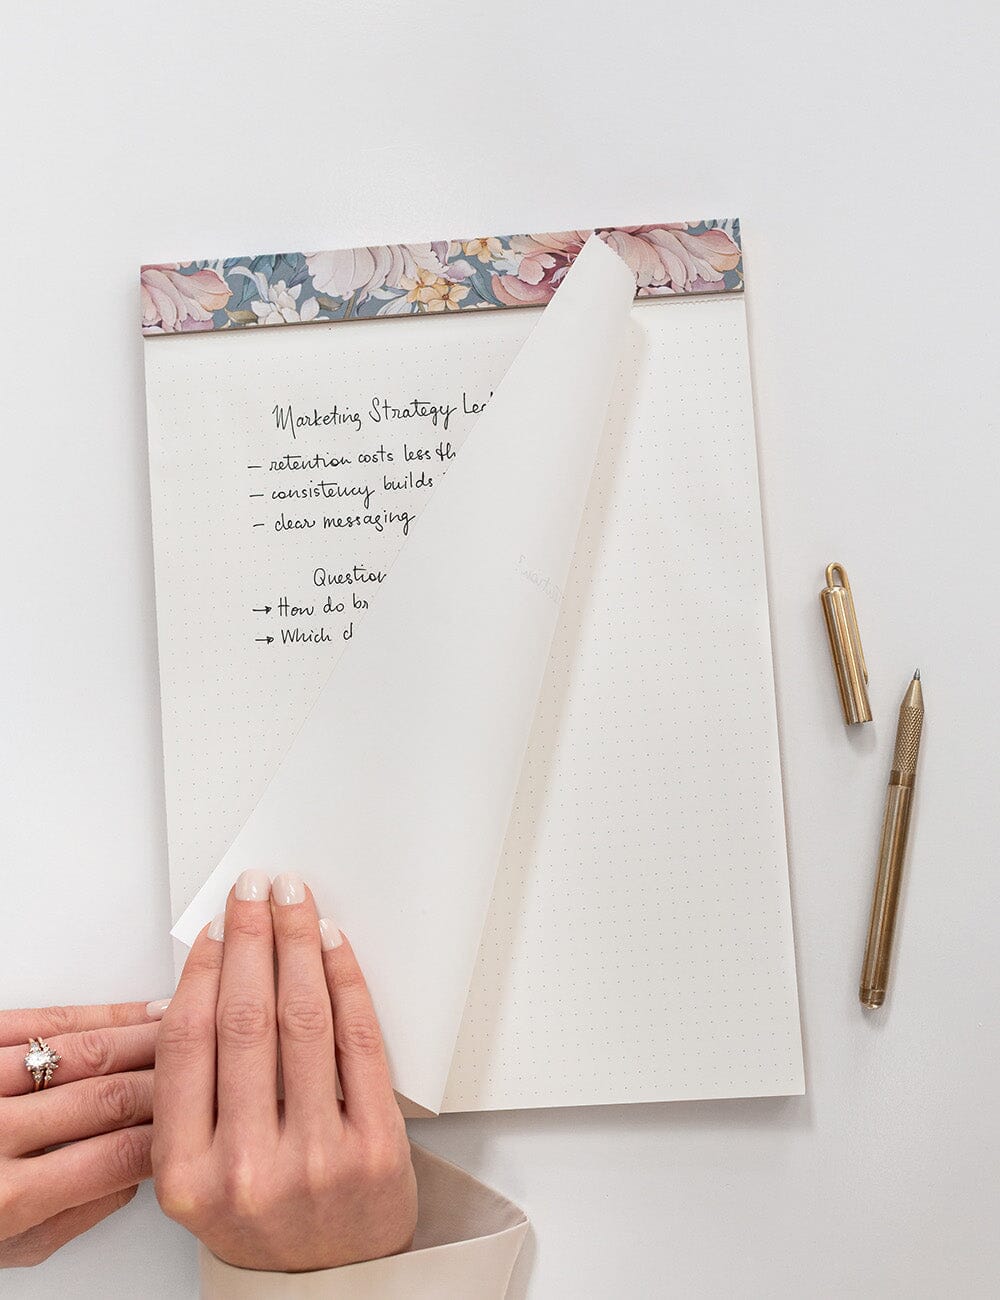 Marketing Strategy
— retention costs less
— consistency builds
— clear messaging
How do
→ Which